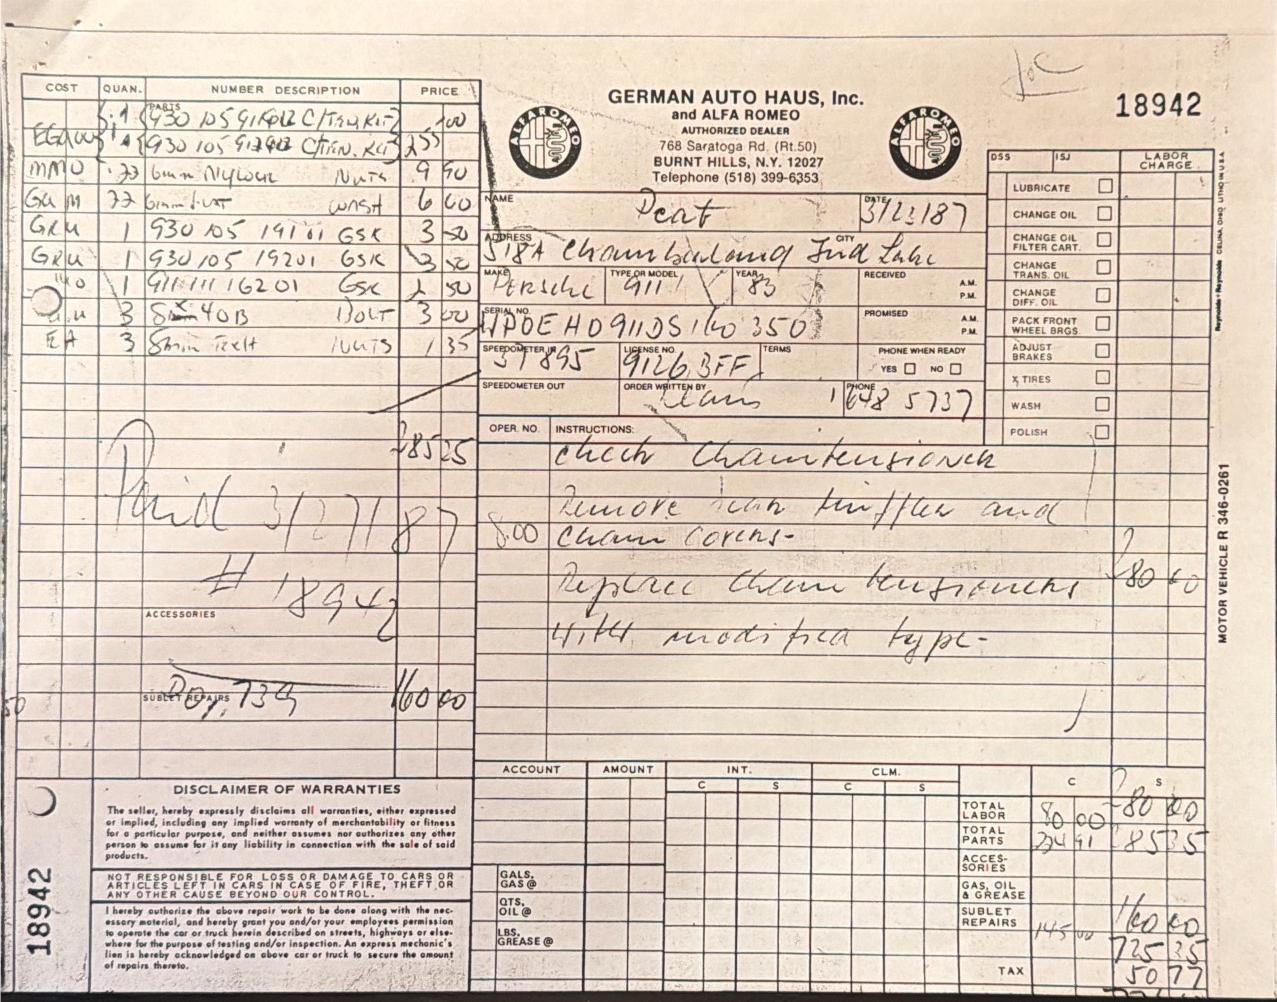 COST QUAN. NUMBER DESCRIPTION PRICE
PARTS
1 930 105 C/TEN. KIT 00
1 930 105 C/TEN. KIT 255
22 6mm Nylock NUTS 9 90
22 6mm WASH 6 60
1 930 105 191 01 GSK 3 50
1 930 105 19201 GSK 3 50
1 GSK 2 50
3 8 x 40 B BOLT 3 00
EA 3 8mm NUTS 1 35
285 25
Paid 3/27/87
# 18942
ACCESSORIES
SUBLET REPAIRS
160 00
GERMAN AUTO HAUS, Inc.
and ALFA ROMEO
AUTHORIZED DEALER
768 Saratoga Rd. (Rt.50)
BURNT HILLS, N.Y. 12027
Telephone (518) 399-6353
ALFA ROMEO
ALFA ROMEO
18942
NAME Peat DATE 3/23/87
ADDRESS 518A CITY Ind Lake
MAKE Porsche TYPE OR MODEL 911 YEAR 83 RECEIVED A.M. P.M.
SERIAL NO. PROMISED A.M. P.M.
SPEEDOMETER IN 37895 LICENSE NO. 9126 BFF TERMS PHONE WHEN READY YES NO
SPEEDOMETER OUT ORDER WRITTEN BY PHONE 648 5737
DSS ISJ LABOR CHARGE
LUBRICATE
CHANGE OIL
CHANGE OIL FILTER CART.
CHANGE TRANS. OIL
CHANGE DIFF. OIL
PACK FRONT WHEEL BRGS.
ADJUST BRAKES
X TIRES
WASH
POLISH
OPER. NO. INSTRUCTIONS:
Check Chaintensioner
Remove muffler and
8.00 Chain Covers-
Replace Chain tensioners 280 00
With modified type-
MOTOR VEHICLE R 346-0261
Reynolds + Reynolds CELINA, OHIO LITHO IN U.S.A.
18942
DISCLAIMER OF WARRANTIES
The seller, hereby expressly disclaims all warranties, either expressed
or implied, including any implied warranty of merchantability or fitness
for a particular purpose, and neither assumes nor authorizes any other
person to assume for it any liability in connection with the sale of said
products.
NOT RESPONSIBLE FOR LOSS OR DAMAGE TO CARS OR
ARTICLES LEFT IN CARS IN CASE OF FIRE, THEFT OR
ANY OTHER CAUSE BEYOND OUR CONTROL.
I hereby authorize the above repair work to be done along with the nec-
essary material, and hereby grant you and/or your employees permission
to operate the car or truck herein described on streets, highways or else-
where for the purpose of testing and/or inspection. An express mechanic's
lien is hereby acknowledged on above car or truck to secure the amount
of repairs thereto.
ACCOUNT AMOUNT INT. CLM.
C S C S C S
GALS. GAS @
QTS. OIL @
LBS. GREASE @
TOTAL LABOR 80 00 280 00
TOTAL PARTS 224 91 285 35
ACCES- SORIES
GAS, OIL & GREASE
SUBLET REPAIRS 145 00 160 00
725 35
TAX 50 77